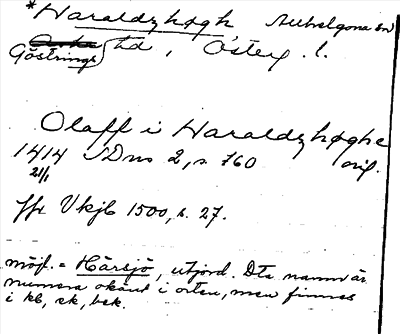 *Haraldzhøgh Aska
Göstrings hd, Österg. l.
Olaff i Haraldzhøghe
1414 SDns 2, s. 760 orig.
21/1
Jfr Vkjb 1500, s. 27.
möjl. = Härsjö, utjord. Dta namn är
numera okänt i orten, men finnes
i kb, sk, bsk.